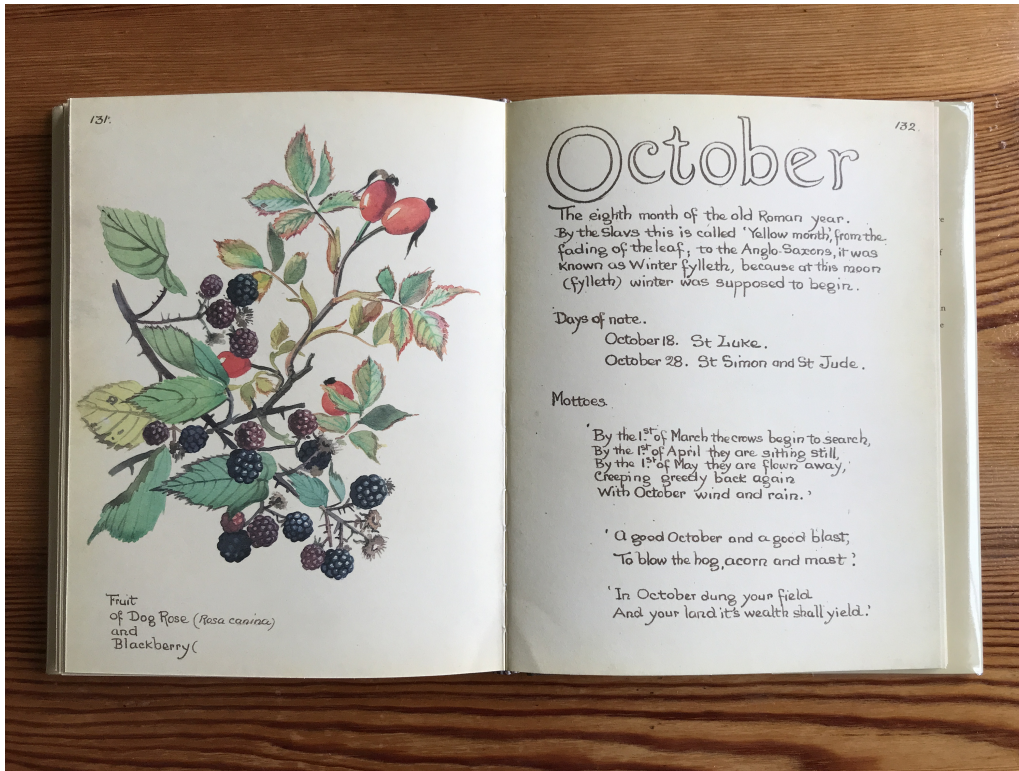 131.
Fruit
of Dog Rose (Rosa canina)
and
Blackberry (
132.
October
The eighth month of the old Roman year.
By the Slavs this is called 'Yellow month', from the
fading of the leaf; to the Anglo-Saxons, it was
known as Winter fylleth, because at this moon
(fylleth) winter was supposed to begin.
Days of note.
October 18. St Luke.
October 28. St Simon and St Jude.
Mottoes
'By the 1st of March the crows begin to search,
By the 1st of April they are sitting still,
By the 1st of May they are flown away,
Creeping greedy back again
With October wind and rain.'
'A good October and a good blast,
To blow the hog, acorn and mast'.
'In October dung your field
And your land it's wealth shall yield.'